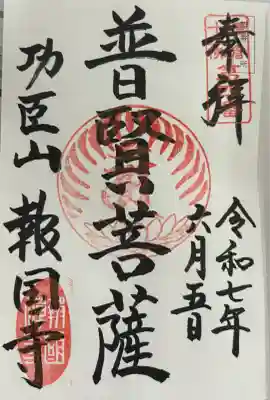 奉拝
令和七年
六月五日
普賢菩薩
功臣山
報国寺